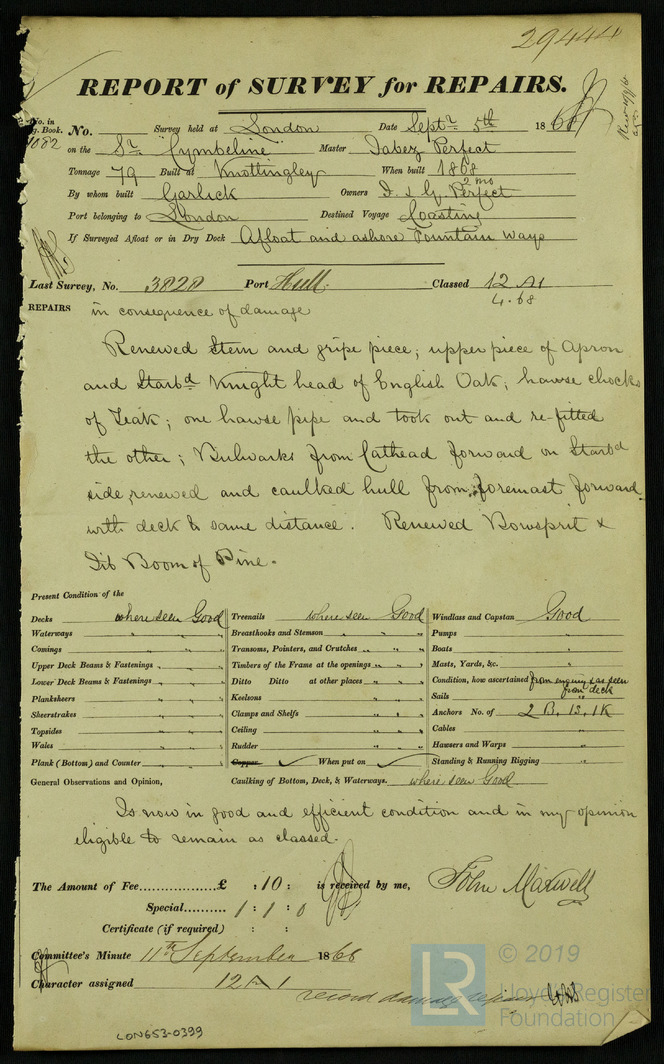 29444
REPORT of SURVEY for REPAIRS.
No. in
g. Book.
1082
No. Survey held at London Date Septr. 5th 1868
on the Sr. "Cymbeline" Master Jabez Perfect
Tonnage 79 Built at Knottingley When built 1868
2 mo
By whom built Garlick Owners D. & G. Perfect
Port belonging to London Destined Voyage Coasting
If Surveyed Afloat or in Dry Dock Afloat and ashore Fountain Ways
Last Survey, No. 3828 Port Hull Classed 12 A1
4.68
REPAIRS in consequence of damage
Renewed Stem and gripe piece; upper piece of Apron
and Starbd Knight head of English Oak; hawse chocks
of Teak; one hawse pipe and took out and re-fitted
the other; Bulwarks from Cathead forward on Starbd
side renewed and caulked hull from foremast forward
with deck to same distance. Renewed Bowsprit &
Jib Boom of Pine.
Present Condition of the
Decks where seen Good Treenails where seen Good Windlass and Capstan Good
Waterways " " " Breasthooks and Stemson " " " Pumps "
Comings " " " Transoms, Pointers, and Crutches " " " Boats "
Upper Deck Beams & Fastenings " " " Timbers of the Frame at the openings " " " Masts, Yards, &c. "
Lower Deck Beams & Fastenings " " " Ditto Ditto at other places " " " Condition, how ascertained from enquiry & as seen
from deck
Planksheers " " " Keelsons " " " Sails "
Sheerstrakes " " " Clamps and Shelfs " " " Anchors No. of 2 B, 1S, 1K
Topsides " " " Ceiling " " " Cables "
Wales " " " Rudder " " " Hawsers and Warps "
Plank (Bottom) and Counter " " " Copper ✓ When put on ✓ Standing & Running Rigging "
General Observations and Opinion, Caulking of Bottom, Deck, & Waterways. where seen Good
Is now in good and efficient condition and in my opinion
eligible to remain as classed.
The Amount of Fee............... £ : 10 : is received by me, John Maxwell
Special.......... 1 : 1 : 0
Certificate (if required) : :
Committee's Minute 11th September 1868
Character assigned 12 A 1
record damage repairs
LON653-0399
LR
© 2019
Lloyd's Register
Foundation